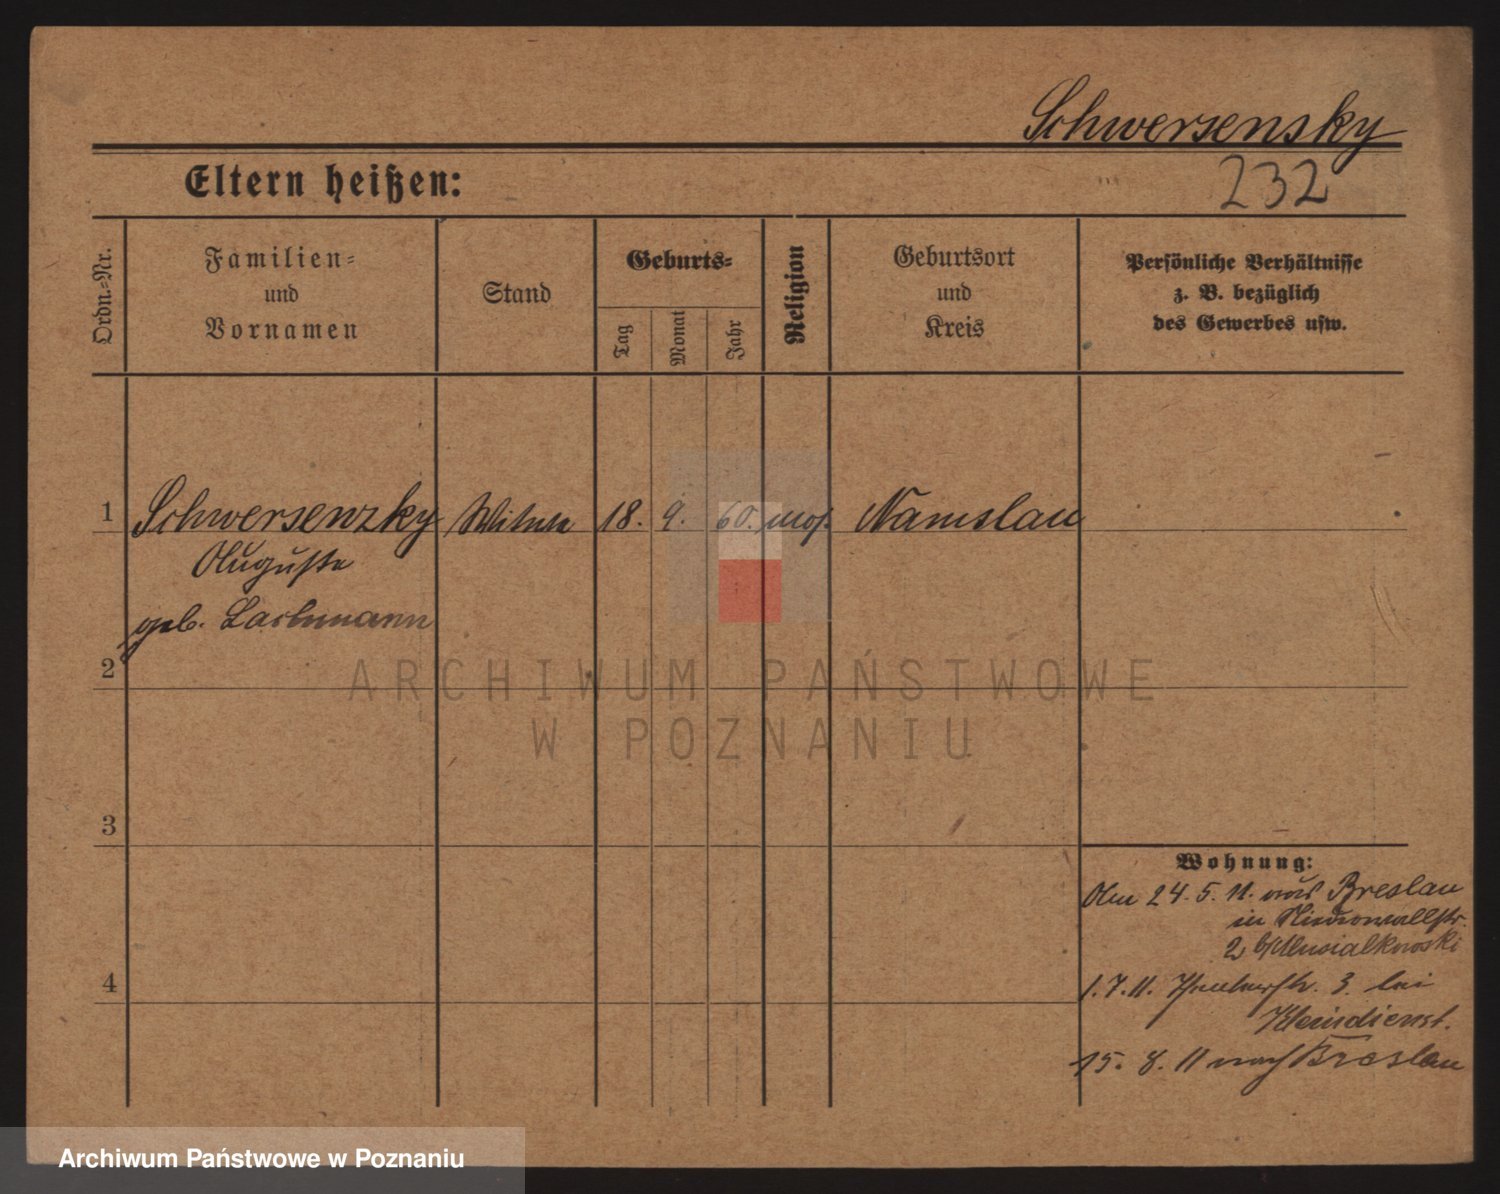 Schwersensky
232
Eltern heißen:
Ordn.=Nr.
Familien=
und
Vornamen
Stand
Geburts=
Tag
Monat
Jahr
Religion
Geburtsort
und
Kreis
Persönliche Verhältnisse
z. B. bezüglich
des Gewerbes usw.
1 Schwersenzky Witwe 18. 9. 60. mos. Namslau
Auguste
geb. Lachmann
2
3
4
Wohnung:
Am 24. 5. 11. aus Breslau
in
2 b/
1. 7. 11. 3. bei
Kleindienst.
15. 8. 11 nach Breslau
ARCHIWUM PAŃSTWOWE
W POZNANIU
Archiwum Państwowe w Poznaniu